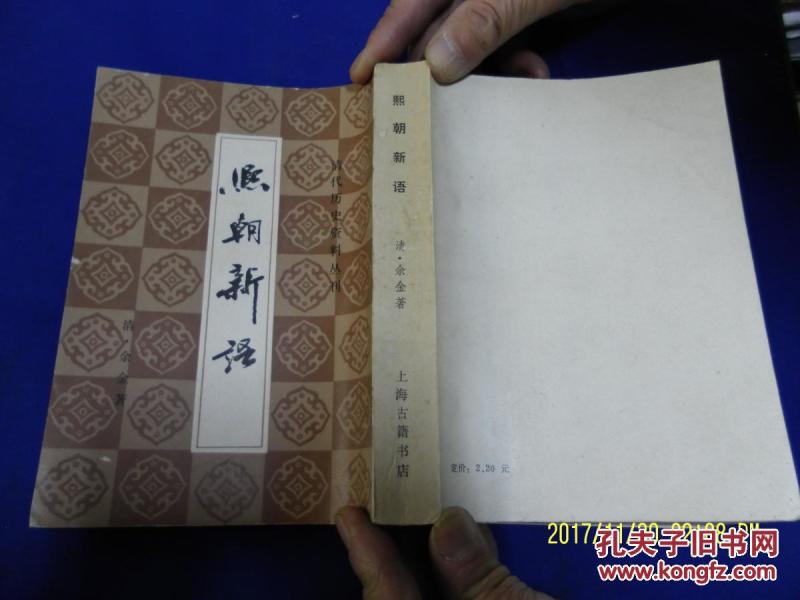 熙朝新語
清代历史资料丛刊
清·余金著
熙朝新语
清·余金著
上海古籍书店
定价：2.20 元
2017/11/
孔夫子旧书网
www.kongfz.com